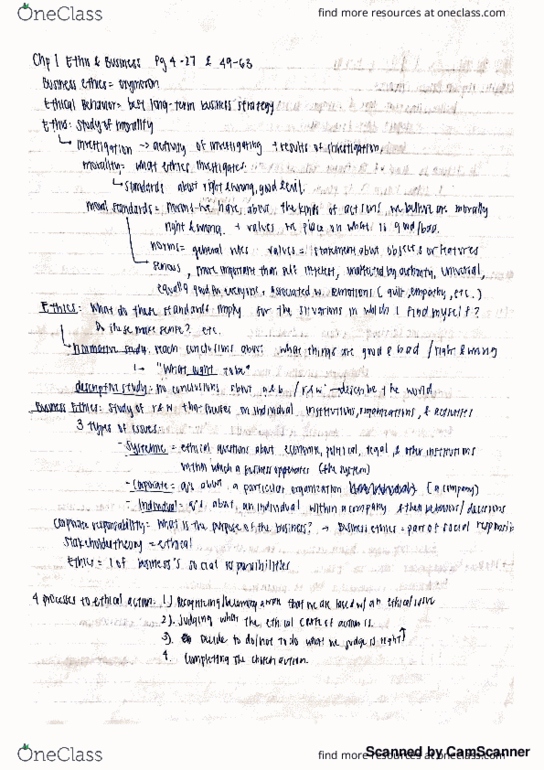 OneClass
find more resources at oneclass.com
Chp 1 Ethics & Business Pg 4-27 & 49-63
Business ethics = oxymoron
Ethical Behavior = best long-term business strategy
Ethics: study of morality
investigation → activity of investigating + results of investigation,
morality = what ethics investigates
standards about right & wrong, good & evil.
moral standards = norms we have about the kinds of actions we believe are morally
right & wrong. + values we place on what is good/bad.
norms = general rules values = statement about objects or features
serious, more important than self interest, unaffected by authority, universal,
equally good for everyone, associated w. emotions (guilt, empathy, etc.)
Ethics: What do these standards imply for the situations in which I find myself?
Do these make sense? etc.
normative study: reach conclusions about what things are good & bad / right & wrong
"What ought to be"
descriptive study: no conclusions about / r&w - describe the world.
Business Ethics: study of r&w that focuses on individual institutions, organizations, & activities
3 types of issues:
- Systemic = ethical questions about economic, political, legal, & other institutions
within which a business operates (the system)
- Corporate = q's about a particular organization (a company)
- Individual = q's about an individual within a company & their behaviors/decisions
Corporate responsibility: What is the purpose of the business? → Business ethics = part of social
Stakeholder theory = ethical
Ethics = 1 of business's social responsibilities
4 processes to ethical action: 1.) Recognizing/becoming aware that we are faced w/ an ethical issue
2). Judging what the ethical course of action is.
3). Decide to do/not to do what we judge is right
4. Completing the chosen action.
OneClass
find more resources at oneclass.com
Scanned by CamScanner